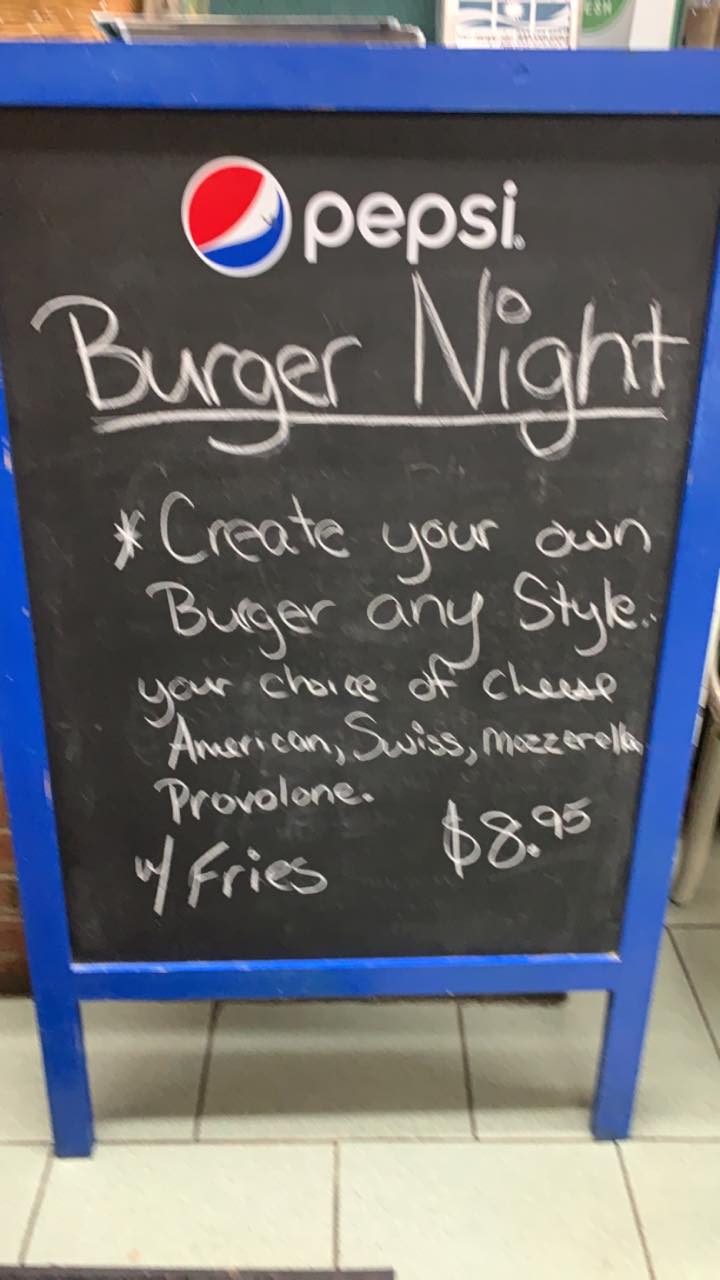 ESH
pepsi
Burger Night
* Create your own
Burger any Style.
your choice of cheese
American, Swiss, mozzerella
Provolone.
w/ Fries $8.95